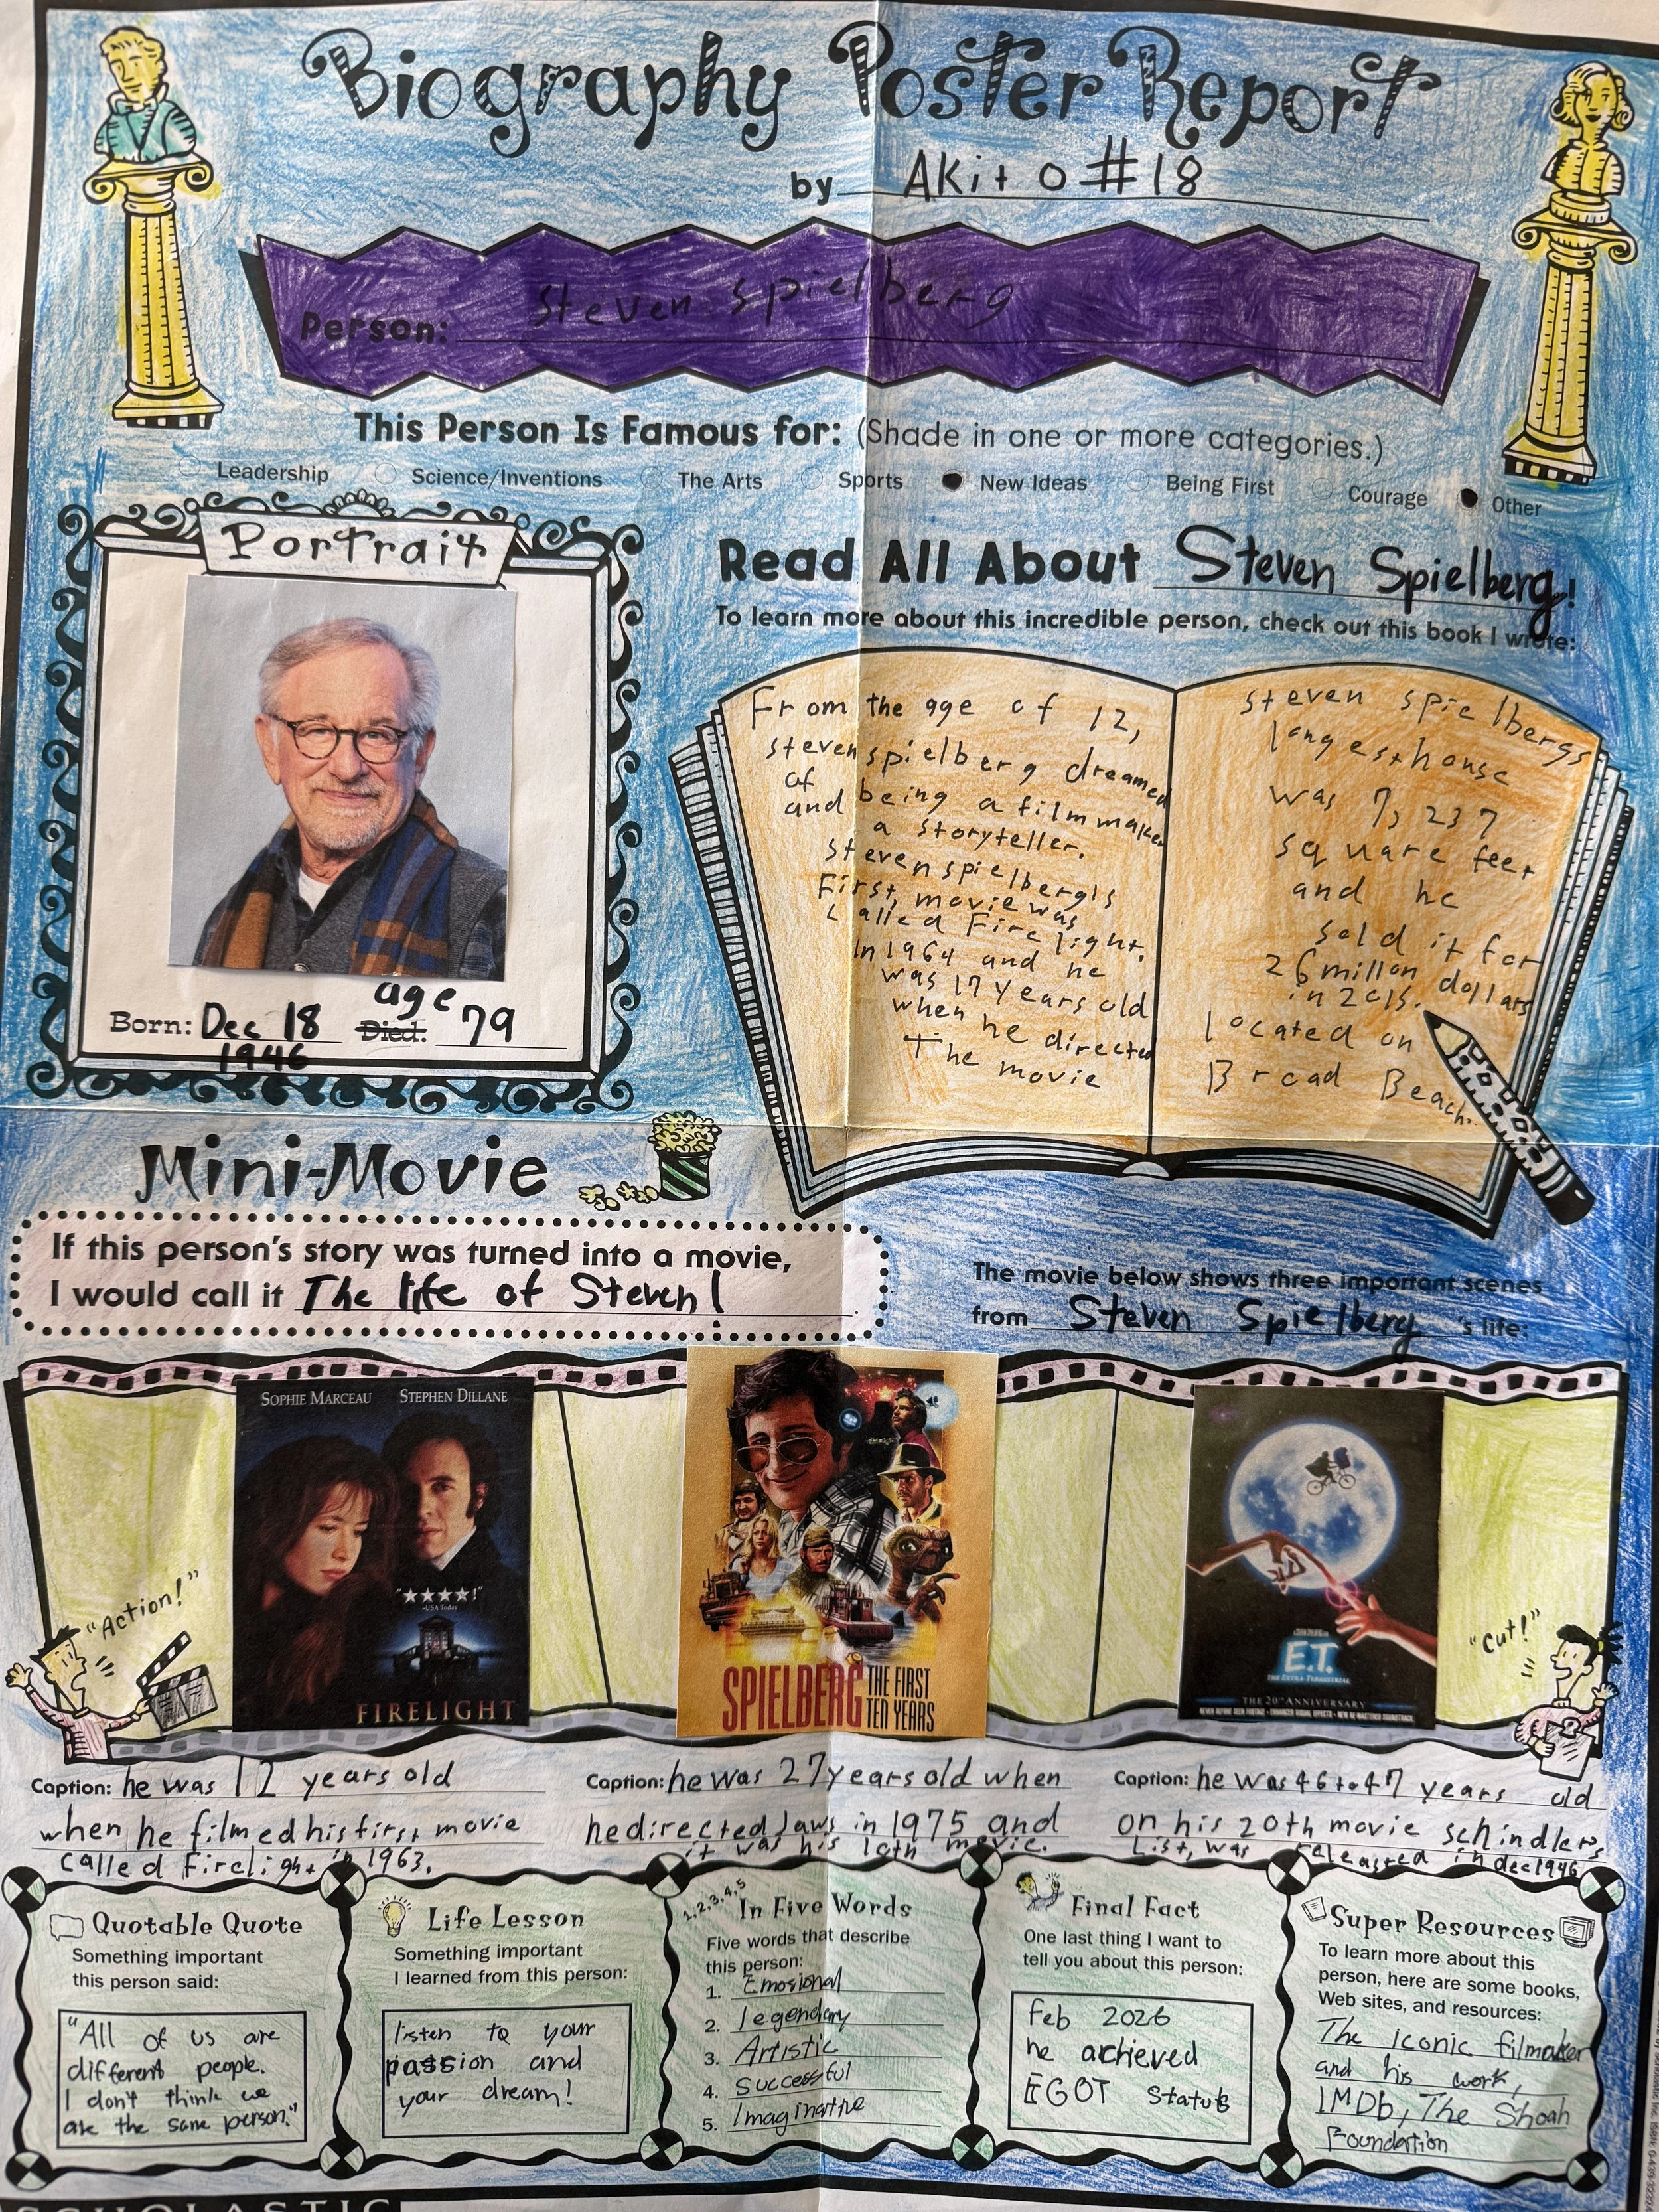 Biography Poster Report
by AKito #18
Person: Steven spielberg
This Person Is Famous for: (Shade in one or more categories.)
Leadership Science/Inventions The Arts Sports New Ideas Being First Courage Other
Portrait
Born: Dec 18 1946
Died: age 79
Read All About Steven Spielberg!
To learn more about this incredible person, check out this book I wrote:
From the age of 12,
steven spielberg dreamed
of being a filmmaker
and a storyteller.
steven spielberg's
First, movie was
called Firelight.
In 1964 and he
was 17 years old
when he directed
The movie
steven spielbergs
longest house
was 7,237
square feet
and he
sold it for
26 millon dollars
in 2015.
located on
Broad Beach.
Mini-Movie
If this person's story was turned into a movie,
I would call it The life of Steven!
The movie below shows three important scenes
from Steven Spielberg 's life:
"Action!"
SOPHIE MARCEAU STEPHEN DILLANE
"★★★★!"
-USA Today
FIRELIGHT
SPIELBERG THE FIRST
TEN YEARS
E.T.
THE EXTRA-TERRESTRIAL
THE 20TH ANNIVERSARY
NEVER BEFORE SEEN FOOTAGE • ENHANCED VISUAL EFFECTS • NEW RE-MASTERED SOUNDTRACK
"Cut!"
Caption: he was 12 years old
when he filmed his first movie
called firelight in 1963.
Caption: he was 27 years old when
he directed Jaws in 1975 and
it was his 10th movie.
Caption: he was 46 to 47 years old
on his 20th movie schindlers
List, was released in dec 1946
Quotable Quote
Something important
this person said:
"All of us are
different people.
I don't think we
are the same person."
Life Lesson
Something important
I learned from this person:
listen to your
passion and
your dream!
1, 2, 3, 4, 5
In Five Words
Five words that describe
this person:
1. Emosional
2. legendary
3. Artistic
4. Successful
5. Imaginative
Final Fact
One last thing I want to
tell you about this person:
Feb 2026
he achieved
EGOT Status
Super Resources
To learn more about this
person, here are some books,
Web sites, and resources:
The iconic filmaker
and his work,
IMDb, The Shoah
Foundation
SCHOLASTIC